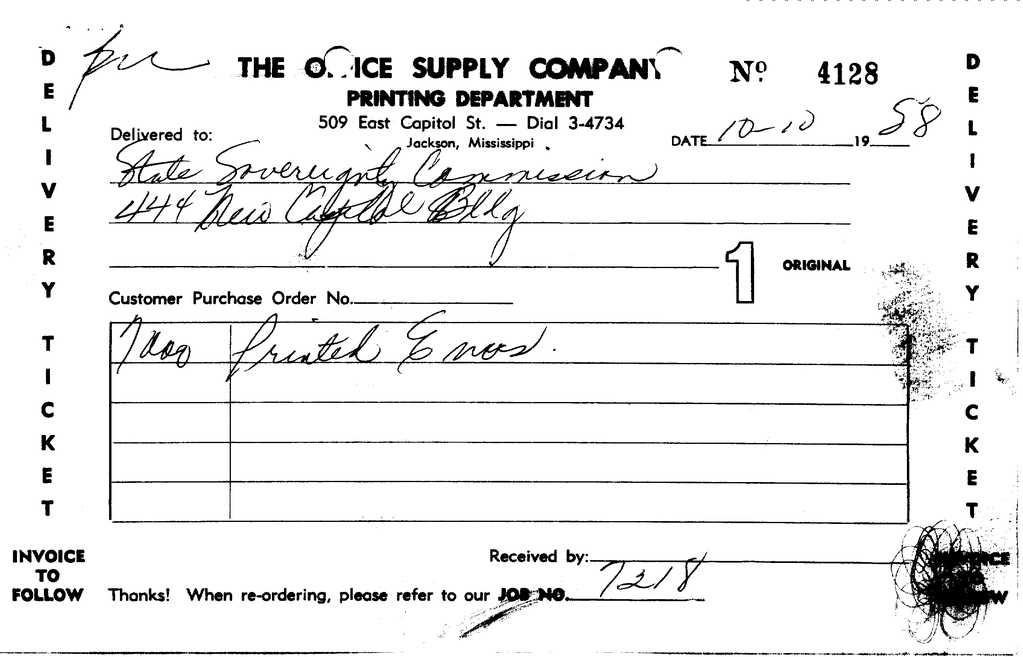 THE OFFICE SUPPLY COMPANY
Nº 4128
PRINTING DEPARTMENT
509 East Capitol St. — Dial 3-4734
Jackson, Mississippi
DATE 10-10 19 58
Delivered to:
State Sovereignty Commission
444 New Capitol Bldg
1 ORIGINAL
Customer Purchase Order No.
7000 Printed Envs.
DELIVERY TICKET
DELIVERY TICKET
Received by:
INVOICE
TO
FOLLOW
Thanks! When re-ordering, please refer to our JOB NO. 7218